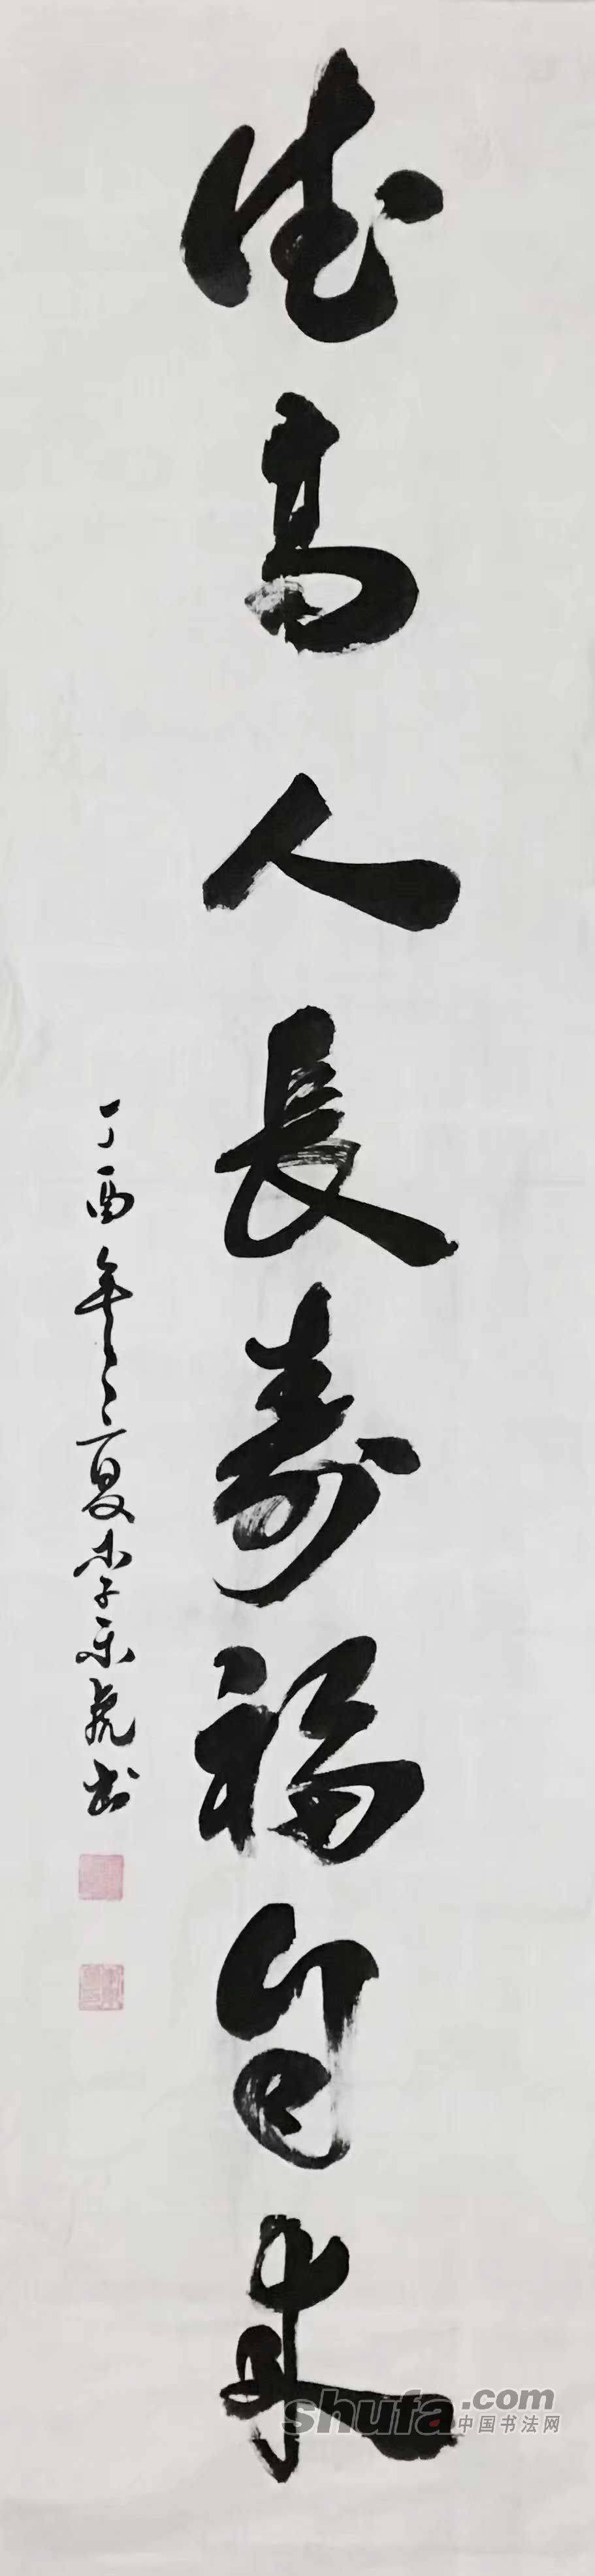 德高人長壽福自來
丁酉年之夏李乐虎书
shufa.com
中国书法网